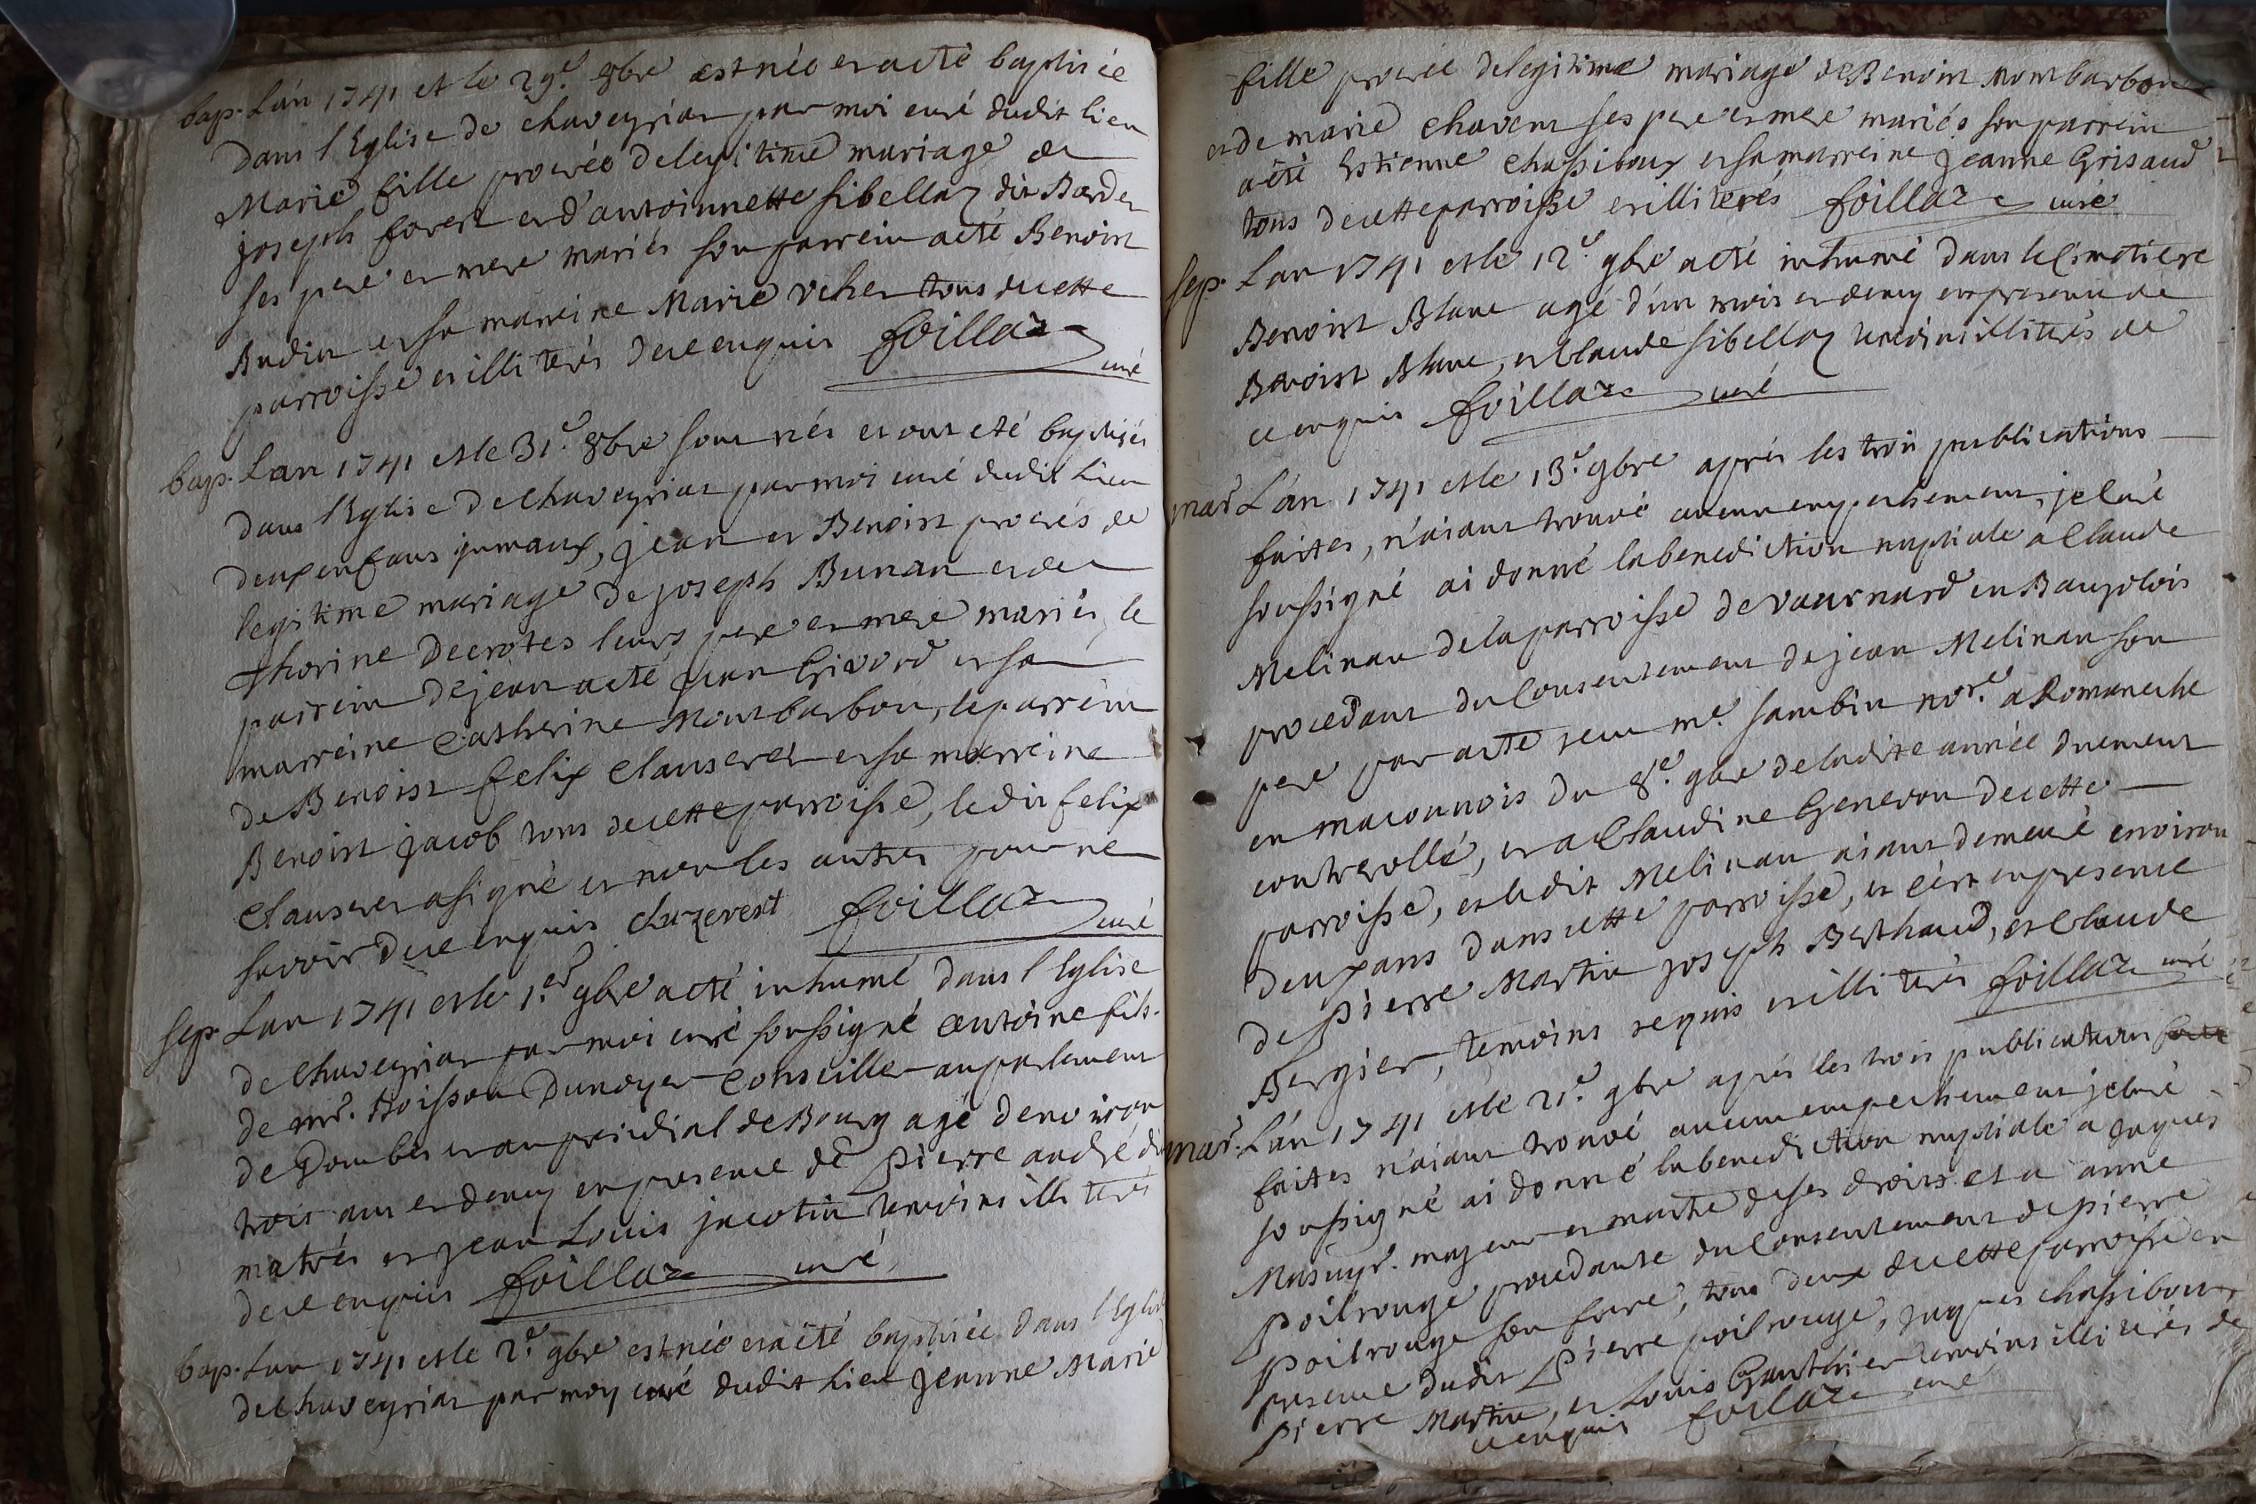 bap. Lan 1741 et le 29.e 8bre est née et a eté baptisée
dans l'Eglise de chaveyriat par moi curé dudit lieu
Marie fille procréée de legitime mariage de
joseph foret et d'antoinnette sibellaz dit Bardet
ses pere et mere mariés son parrein a eté Benoist
Budin et sa marreine Marie vcher tous de cette
parroisse et illiterés de ce enquis foillaz curé
bap. Lan 1741 et le 31.e 8bre sont nés et ont eté baptisés
dans l'Eglise de chaveyriat par moi curé dudit lieu
deux enfans jumaux, jean et Benoist procrés de
legitime mariage de joseph Bunan et de
thorine Decrotes leurs pere et mere mariés, le
parrein de jean a eté jean Givord et sa
marreine Catherine Montbarbon, le parrein
de Benoist felix Clauseret et sa marreine
Benoist jacob tous de cette parroisse, ledit felix
Clauseret a signé et non les autres pour ne
savoir de ce enquis chazerest foillaz curé
sep. Lan 1741 et le 1.er 9bre a eté inhumé dans l'Eglise
de chaveyriat par moi curé soussigné antoine fils
de mr. Boisson Dunoyer Conseiller au parlement
de Dombes et au presidial de Bourg agé d'environ
trois ans et demy en presence de pierre andré dit
matrés et jean Louis jacotin temoins illiterés
de ce enquis foillaz curé
bap. Lan 1741 et le 2.e 9bre est née et a eté baptisée dans l'Eglise
de Chaveyriat par moy curé dudit lieu jeanne Marie
fille procréée de legitime mariage de Benoist Montbarbon
et de marie chavent ses pere et mere mariés son parrein
a eté Estienne chassiboux et sa marreine jeanne Grisaud
tous de cette parroisse et illiterés foillaz curé
sep. Lan 1741 et le 12.e 9bre a eté inhumé dans le Cimetiere
Benoist Blanc agé d'un mois et demy en presence de
Benoist Blanc, et Claude sibellaz temoins illiterés de
ce enquis foillaz curé
mar. Lan 1741 et le 13.e 9bre aprés les trois publications
faites, n'aiant trouvé aucun empechement, je curé
soussigné ai donné la benediction nuptiale a Claude
Melinan de la parroisse de vauxrnard en Baujolois
procedant du Consentement de jean Melinan son
pere par acte receu me. sambin nore. a Romaneche
en maconnois du 8.e 9bre de ladite année duement
controllé, et a Claudine Genevon de cette
parroisse, et ledit Melinan aiant demeuré environ
deux ans dans cette parroisse, et c'est en presence
de pierre Martin joseph Berthaud, et Claude
Bergier, temoins requis et illiterés foillaz curé
mar. Lan 1741 et le 21.e 9bre aprés les trois publications
faites n'aiant trouvé aucun empechement je curé
soussigné ai donné la benediction nuptiale a jaques
Masuyr. majeur et maitre de ses droits et a anne
poilrouge procedante du Consentement de pierre
poilrouge son frere, tous deux de cette parroisse en
presence dudit pierre poilrouge, jaques chassiboux,
pierre Martin, et Louis Gauthier temoins illiterés de
ce enquis foillaz curé